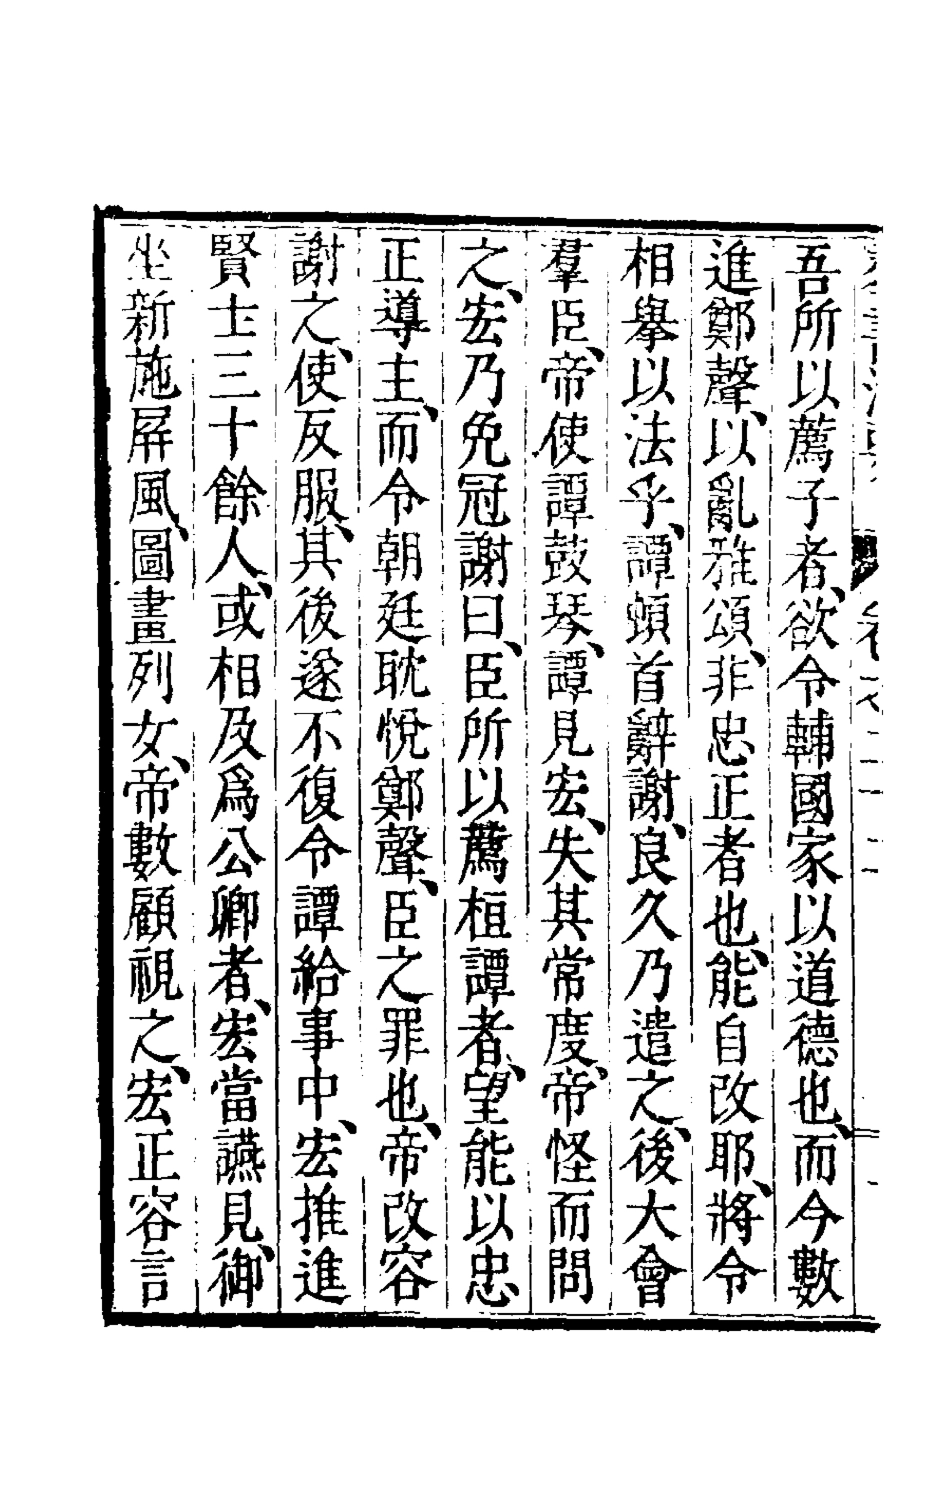 吾所以薦子者、欲令輔國家以道德也、而今數
進鄭聲、以亂雅頌、非忠正者也、能自改耶、將令
相擧以法乎、譚頓首辭謝、良久乃遣之、後大會
羣臣、帝使譚鼓琴、譚見宏、失其常度、帝怪而問
之、宏乃免冠謝曰、臣所以薦桓譚者、望能以忠
正導主、而令朝廷耽悅鄭聲、臣之罪也、帝改容
謝之、使反服、其後遂不復令譚給事中、宏推進
賢士三十餘人、或相及爲公卿者、宏當讌見、御
坐新施屏風、圖畫列女、帝數顧視之、宏正容言